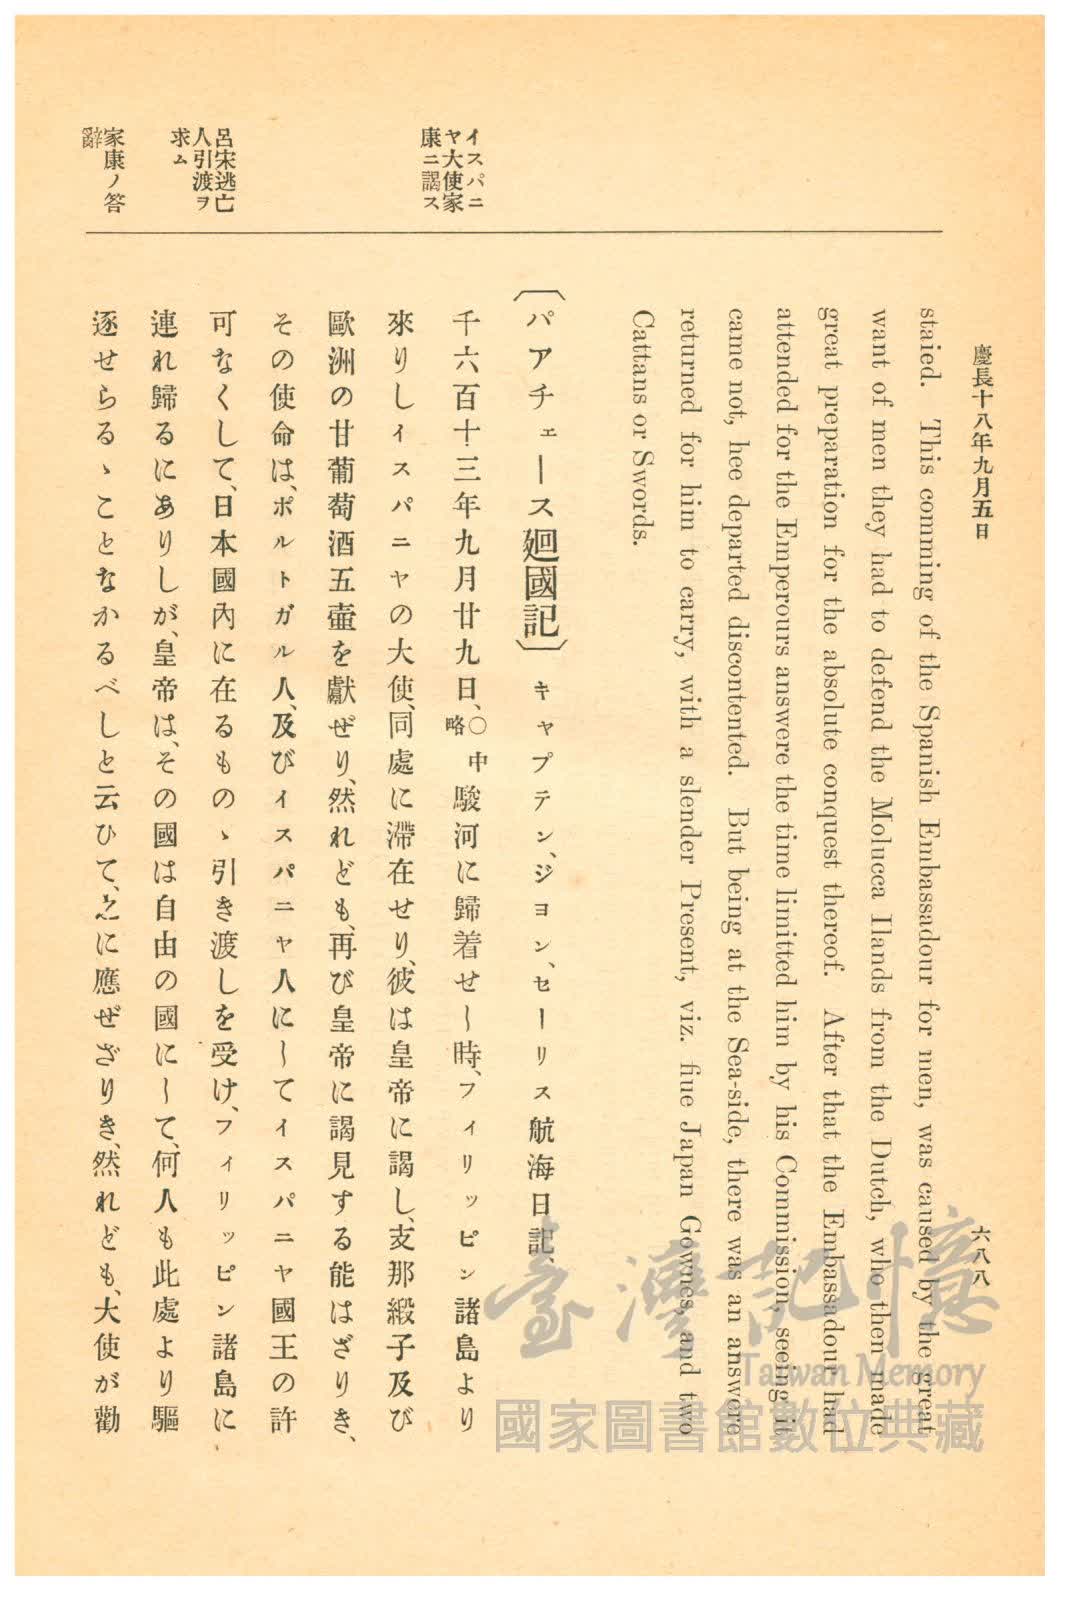 慶長十八年九月五日
六八八
staied. This comming of the Spanish Embassadour for men, was caused by the great
want of men they had to defend the Molucca Ilands from the Dutch, who then made
great preparation for the absolute conquest thereof. After that the Embassadour had
attended for the Emperours answere the time limitted him by his Commission, seeing it
came not, hee departed discontented. But being at the Sea-side, there was an answere
returned for him to carry, with a slender Present, viz. fiue Japan Gownes, and two
Cattans or Swords.
〔パアチェース廻國記〕キャプテン、ジヨン、セーリス航海日記、
千六百十三年九月廿九日、〇中略駿河に歸着せし時、フィリッピン諸島より
イスパニヤ大使家康ニ謁ス
來りしイスパニヤの大使、同處に滯在せり、彼は皇帝に謁し、支那緞子及び
歐洲の甘葡萄酒五壷を獻ぜり、然れども、再び皇帝に謁見する能はざりき、
その使命は、ポルトガル人、及びイスパニヤ人にしてイスパニヤ國王の許
呂宋逃亡人引渡ヲ求ム
可なくして、日本國內に在るものゝ引き渡しを受け、フィリッピン諸島に
連れ歸るにありしが、皇帝は、その國は自由の國にして、何人も此處より驅
家康ノ答辭
逐せらるゝことなかるべしと云ひて、之に應ぜざりき、然れども、大使が勸
臺灣記憶
Taiwan Memory
國家圖書館數位典藏